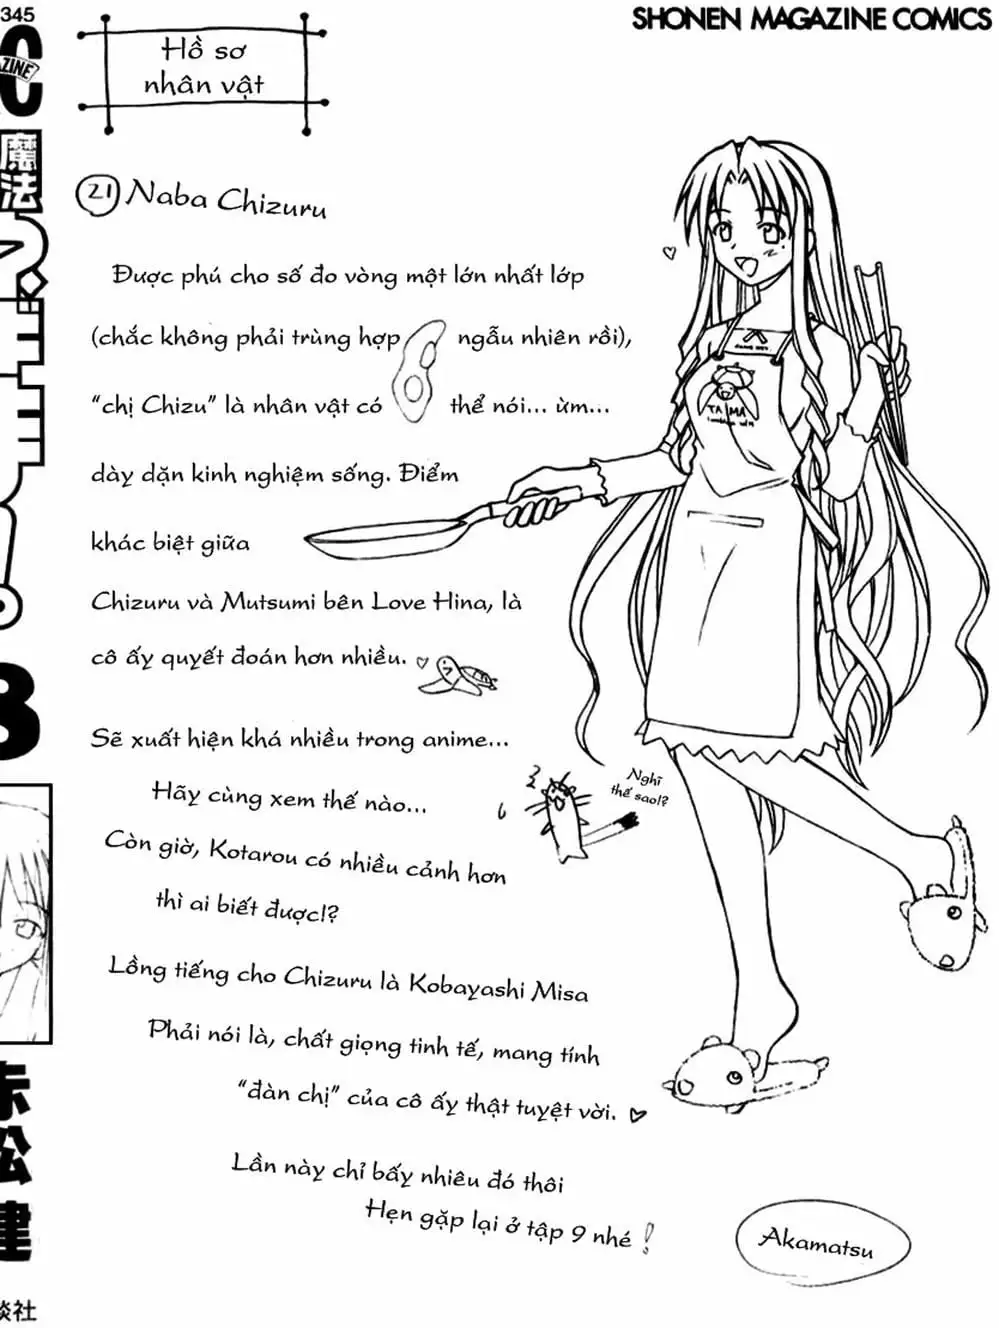 345
SHONEN MAGAZINE COMICS
ZINE
魔法
8
赤松健
談社
Hồ sơ
nhân vật
21 Naba Chizuru
Được phú cho số đo vòng một lớn nhất lớp
(chắc không phải trùng hợp ngẫu nhiên rồi),
“chị Chizu” là nhân vật có thể nói... ừm...
dày dặn kinh nghiệm sống. Điểm
khác biệt giữa
Chizuru và Mutsumi bên Love Hina, là
cô ấy quyết đoán hơn nhiều.
TAMA
Sẽ xuất hiện khá nhiều trong anime...
Hãy cùng xem thế nào...
Nghĩ
thế sao!?
Còn giờ, Kotarou có nhiều cảnh hơn
thì ai biết được!?
Lồng tiếng cho Chizuru là Kobayashi Misa
Phải nói là, chất giọng tinh tế, mang tính
“đàn chị” của cô ấy thật tuyệt vời.
Lần này chỉ bấy nhiêu đó thôi
Hẹn gặp lại ở tập 9 nhé !
Akamatsu